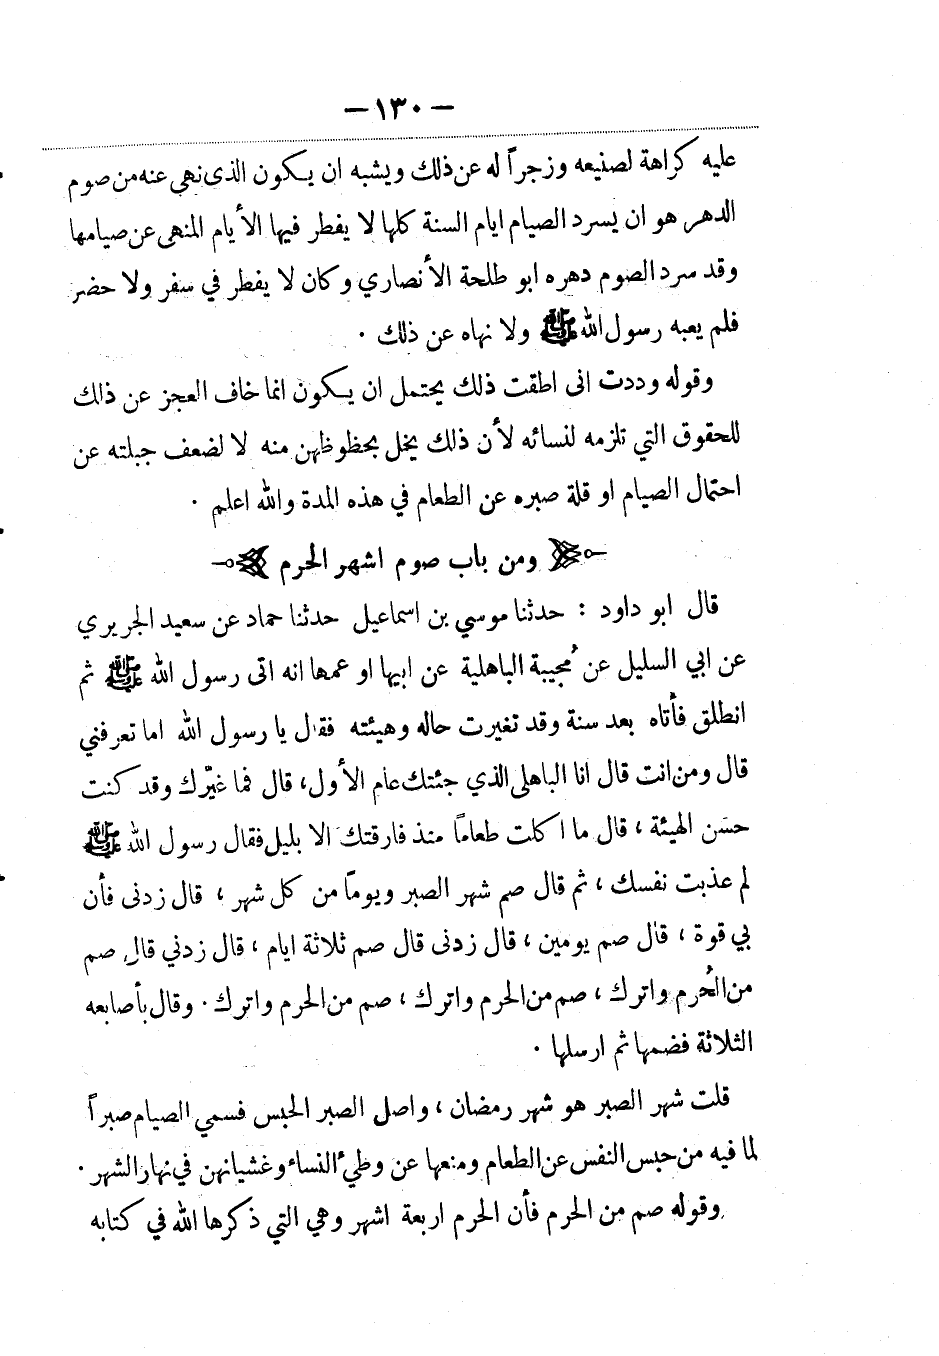 — ١٣٠ —
عليه كراهة لصنيعه وزجراً له عن ذلك ويشبه ان يكون الذى نهى عنه من صوم
الدهر هو ان يسرد الصيام ايام السنة كلها لا يفطر فيها الأيام المنهى عن صيامها
وقد سرد الصوم دهره ابو طلحة الأنصاري وكان لا يفطر في سفر ولا حضر
فلم يعبه رسول الله ﷺ ولا نهاه عن ذلك ٠
وقوله وددت انى اطقت ذلك يحتمل ان يكون انما خاف العجز عن ذلك
للحقوق التي تلزمه لنسائه لأن ذلك يخل بحظوظهن منه لا لضعف جبلته عن
احتمال الصيام او قلة صبره عن الطعام في هذه المدة والله اعلم ٠
ومن باب صوم اشهر الحرم
قال ابو داود : حدثنا موسي بن اسماعيل حدثنا حماد عن سعيد الجريري
عن ابي السليل عن مُجيبة الباهلية عن ابيها او عمها انه اتى رسول الله ﷺ ثم
انطلق فأتاه بعد سنة وقد تغيرت حاله وهيئته فقال يا رسول الله اما تعرفني
قال ومن انت قال انا الباهلى الذي جئتك عام الأول، قال فما غيّرك وقد كنت
حسَن الهيئة ، قال ما اكلت طعاماً منذ فارقتك الا بليل فقال رسول الله ﷺ
لم عذبت نفسك ، ثم قال صم شهر الصبر ويوماً من كل شهر ، قال زدنى فأن
بي قوة ، قال صم يومين ، قال زدنى قال صم ثلاثة ايام ، قال زدني قال صم
من الحُرم واترك ، صم من الحرم واترك ، صم من الحرم واترك ٠ وقال بأصابعه
الثلاثة فضمها ثم ارسلها ٠
قلت شهر الصبر هو شهر رمضان ، واصل الصبر الحبس فسمي الصيام صبراً
لما فيه من حبس النفس عن الطعام ومنعها عن وطيء النساء وغشيانهن في نهار الشهر ٠
وقوله صم من الحرم فأن الحرم اربعة اشهر وهي التي ذكرها الله في كتابه